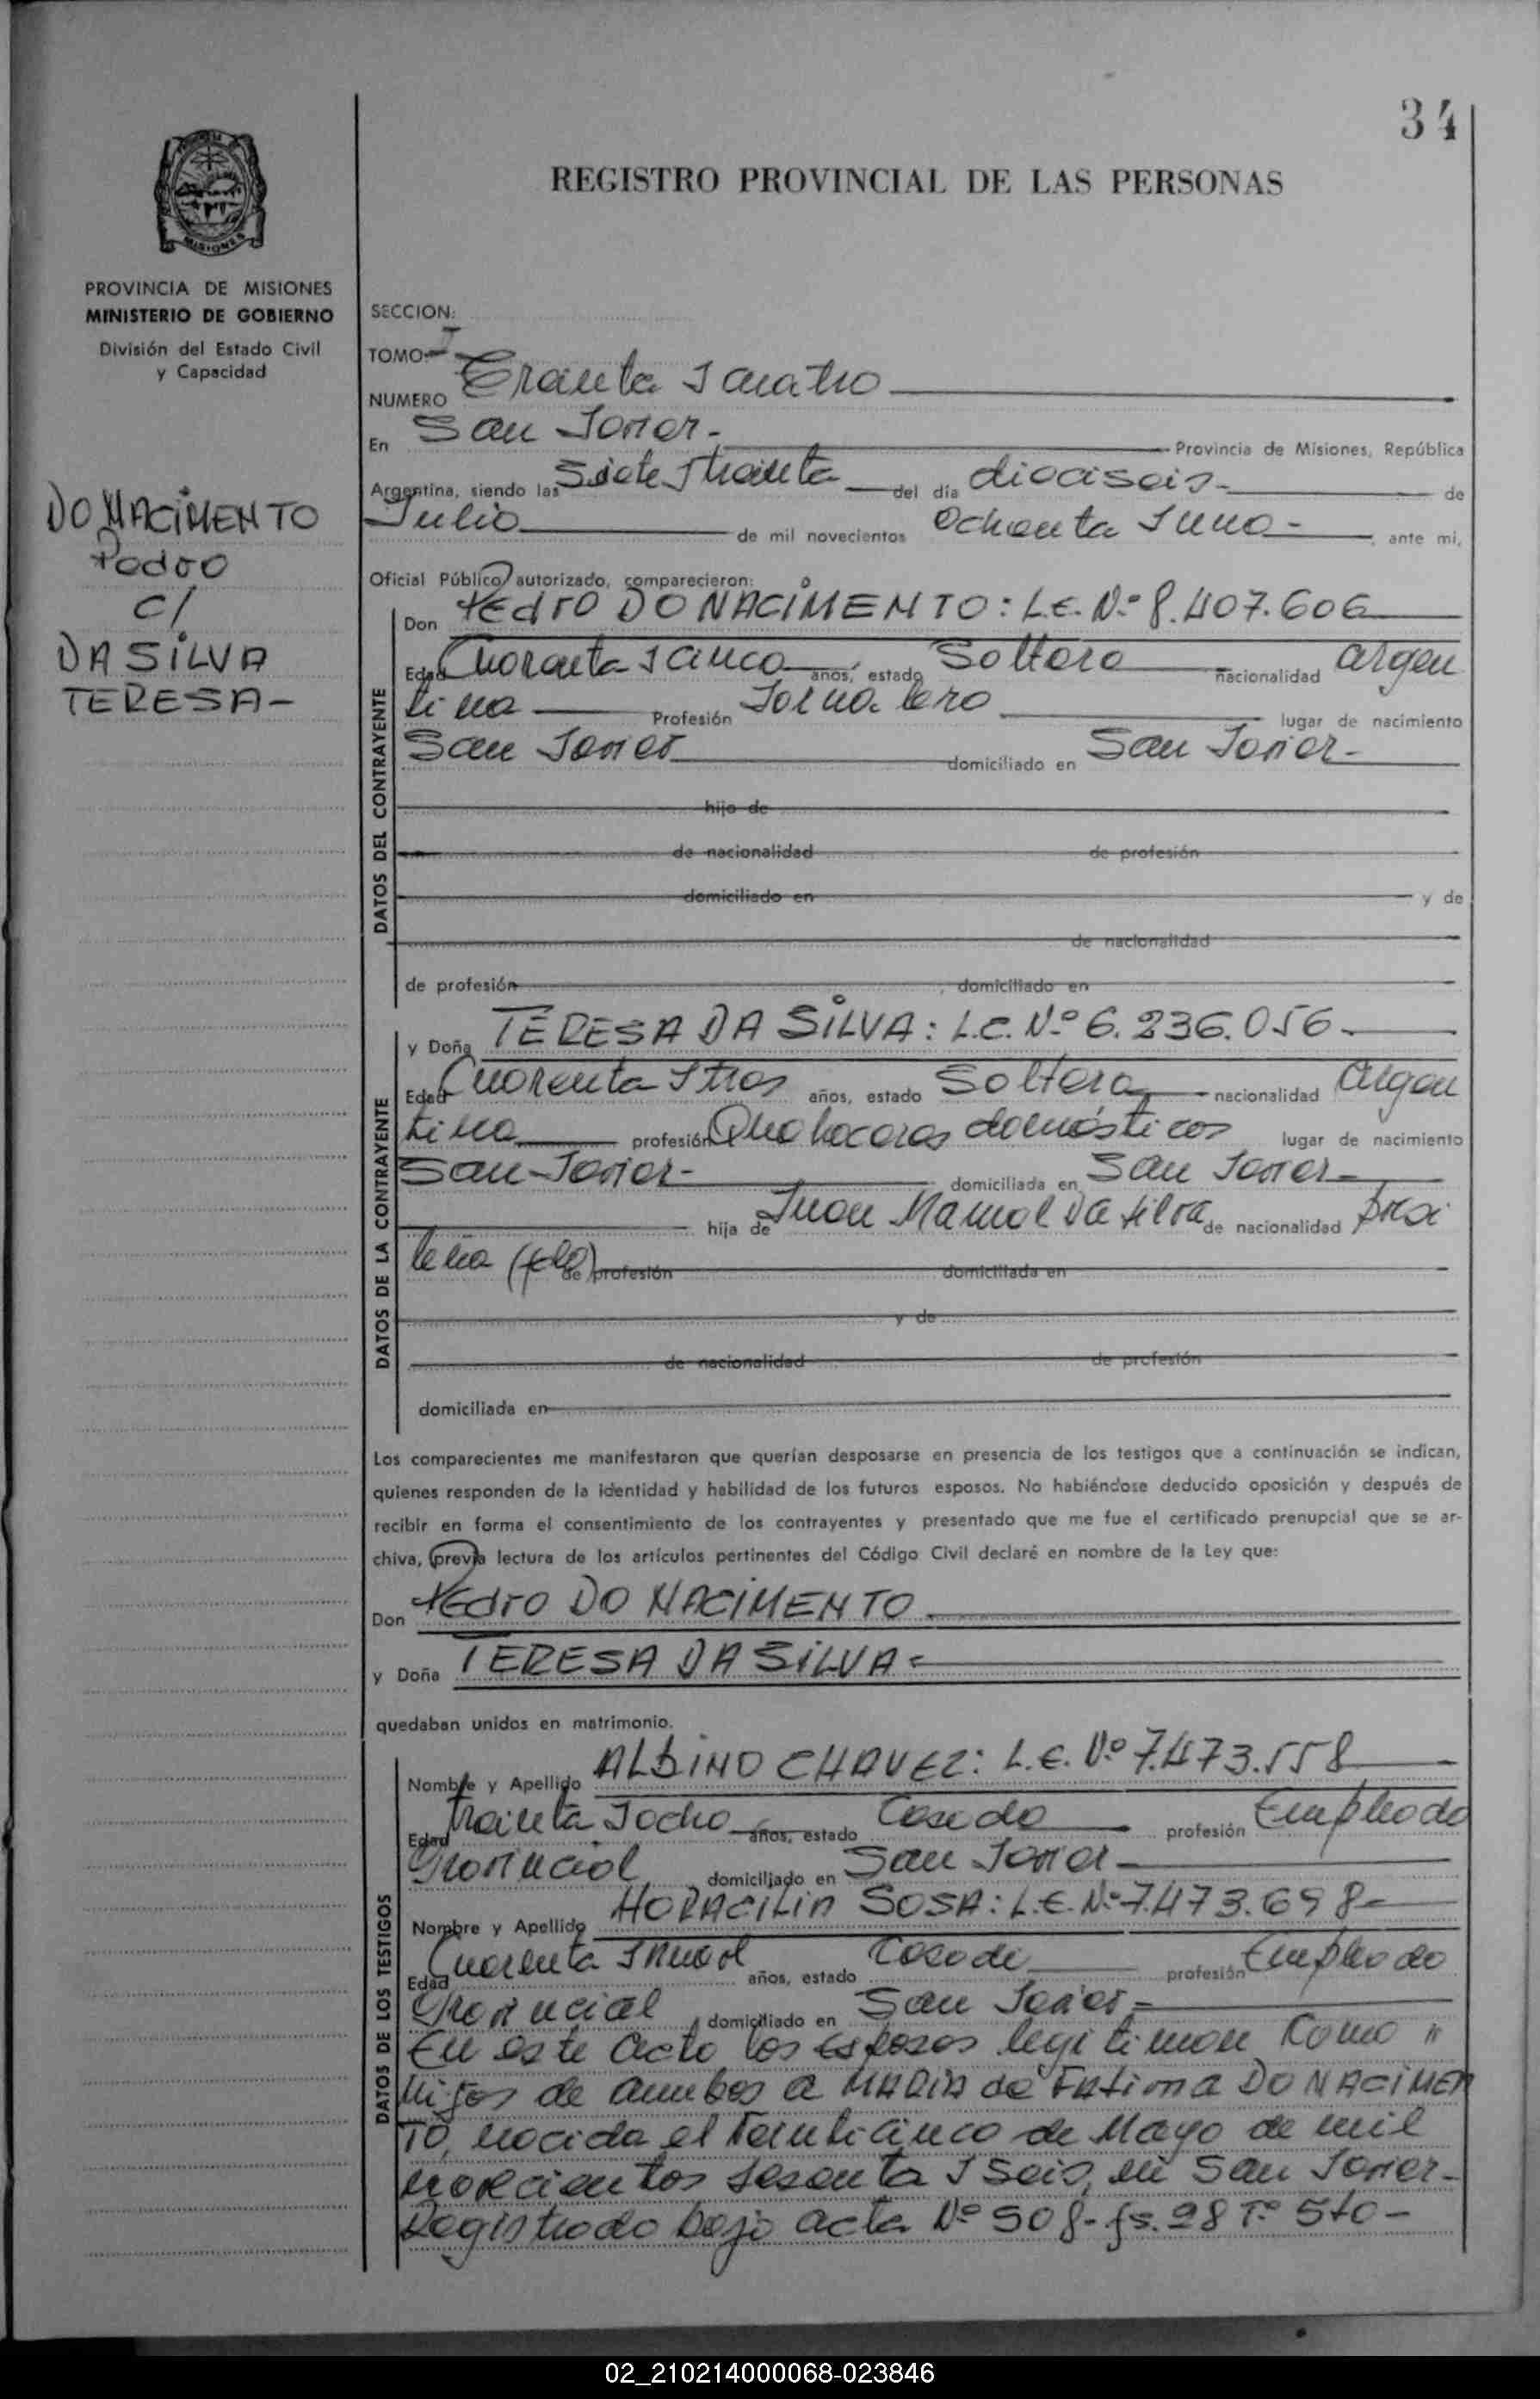 34
REGISTRO PROVINCIAL DE LAS PERSONAS
MISIONES
PROVINCIA DE MISIONES
MINISTERIO DE GOBIERNO
División del Estado Civil
y Capacidad
DO NACIMENTO
Pedro
c/
DA SILVA
TERESA-
SECCION:
TOMO: I
NUMERO Treinta y cuatro
En San Javier.- Provincia de Misiones, República
Argentina, siendo las Siete y treinta del día dieciseis- de
Julio de mil novecientos Ochenta y uno- , ante mi,
Oficial Público autorizado, comparecieron:
DATOS DEL CONTRAYENTE
Don Pedro DO NACIMENTO: L.E. Nº 8.407.606
Edad Cuarenta y cinco años, estado Soltero nacionalidad argen
tina Profesión Jornalero lugar de nacimiento
San Javier domiciliado en San Javier-
hijo de
de nacionalidad de profesión
domiciliado en y de
de nacionalidad
de profesión , domiciliado en
DATOS DE LA CONTRAYENTE
y Doña TERESA DA SILVA: L.C. Nº 6.236.056-
Edad Cuarenta y tres años, estado Soltera nacionalidad Argen
tina profesión Quehaceres domésticos lugar de nacimiento
San Javier- domiciliada en San Javier-
hija de Juan Manuel Da Silva de nacionalidad brasi
leña (fdo) de profesión domiciliada en
y de
de nacionalidad de profesión
domiciliada en
Los comparecientes me manifestaron que querían desposarse en presencia de los testigos que a continuación se indican,
quienes responden de la identidad y habilidad de los futuros esposos. No habiéndose deducido oposición y después de
recibir en forma el consentimiento de los contrayentes y presentado que me fue el certificado prenupcial que se ar-
chiva, previa lectura de los artículos pertinentes del Código Civil declaré en nombre de la Ley que:
Don Pedro DO NACIMENTO
y Doña TERESA DA SILVA-
quedaban unidos en matrimonio.
DATOS DE LOS TESTIGOS
Nombre y Apellido ALBINO CHAVEZ: L.E. Nº 7.473.558
Edad Treinta y ocho años, estado Casado profesión Empleado
Provincial domiciliado en San Javier-
Nombre y Apellido HORACILIA SOSA: L.E. Nº 7.473.698-
Edad Cuarenta y nueve años, estado Casado profesión Empleado
Provincial domiciliado en San Javier-
En este acto los esposos legitiman como "
hijos de ambos a MARIA de FATIMA DO NACIMEN
TO, nacida el veinticinco de Mayo de mil
novecientos sesenta y seis, en San Javier-
Registrado bajo acta Nº 508- fs. 98 Tº 5to-
02_210214000068-023846